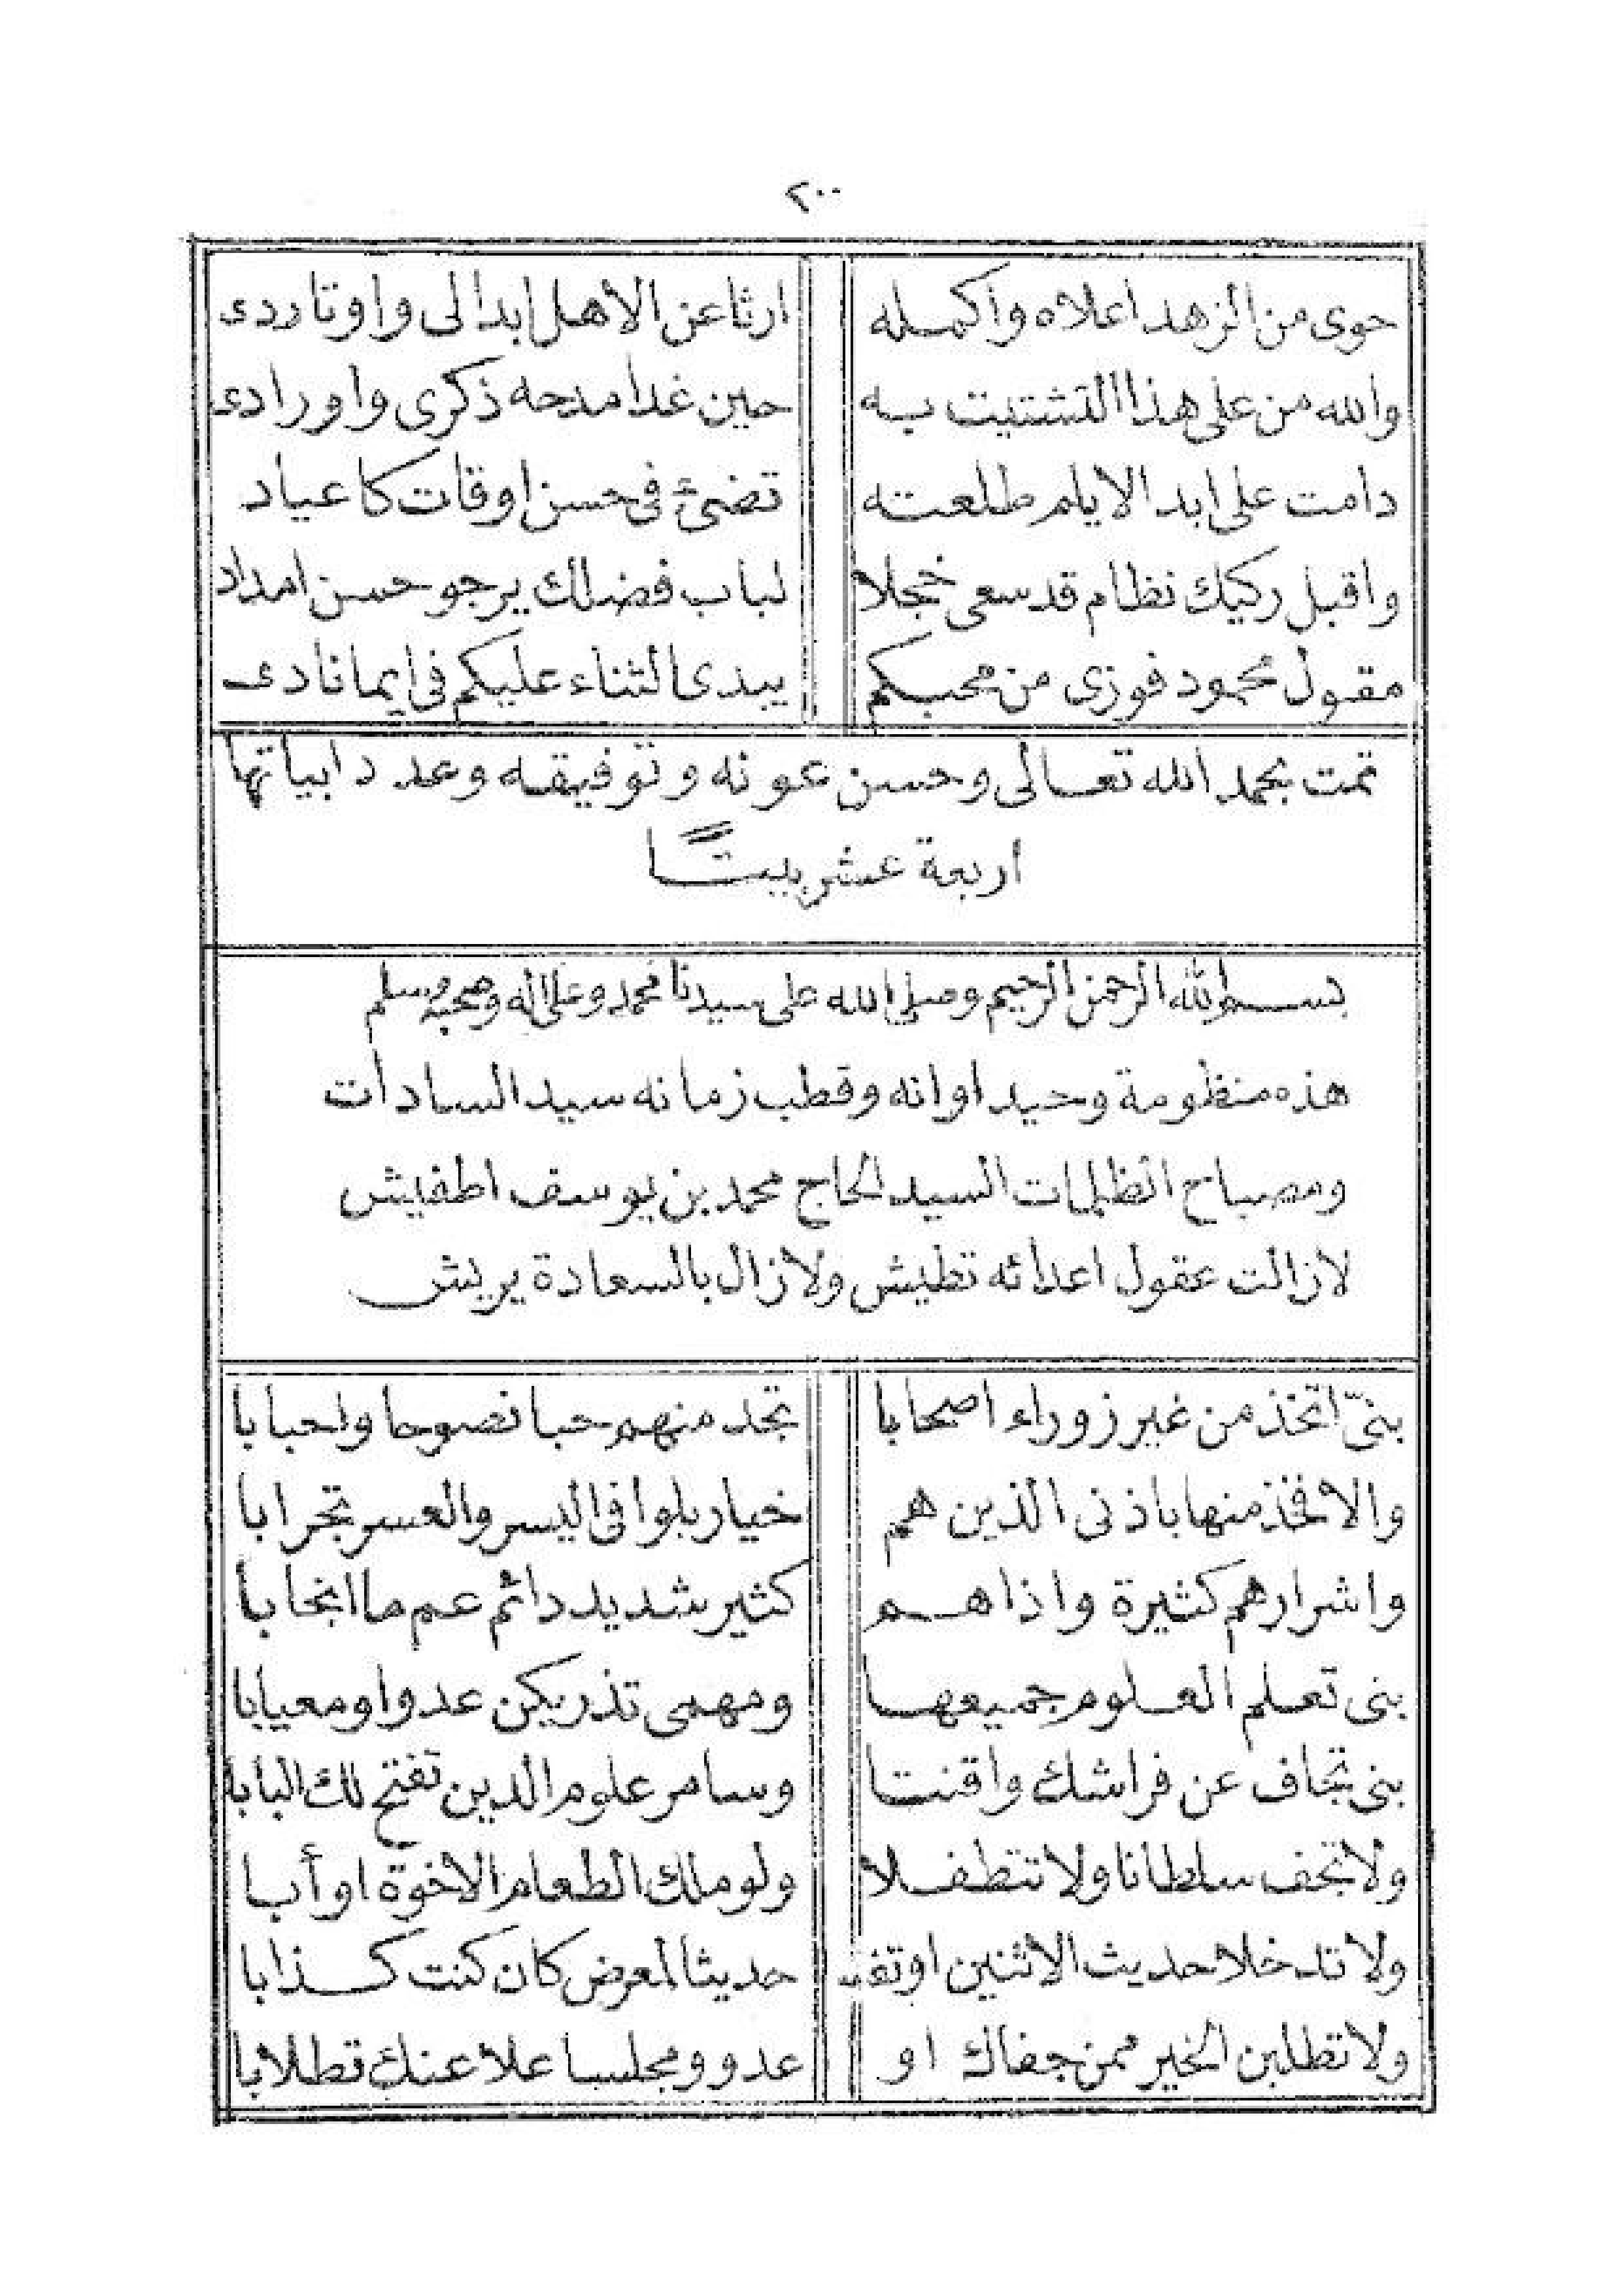 ٢٠٠
حوى من الزهد اعلاه واكمله ارثا عن الاهل ابدالى واوتاردى
والله من على هذا التشتيت به حين غدا مدحه ذكرى واورادى
دامت على ابد الايلم طلعته تضئ فى حسن اوقات كاعياد
واقبل ركيك نظام قد سعى خجلا لباب فضلك يرجو حسن امداد
مقول محمود فوزى من محبكم يبدى الثناء عليكم فى ايما نادى
تمت بحمد الله تعالى وحسن عونه وتوفيقه وعدد ابياتها
اربعة عشر بيتًا
بسم الله الرحمن الرحيم وصلى الله على سيدنا محمد وعلى اله وصحبه وسلم
هذه منظومة وحيد اوانه وقطب زمانه سيد السادات
ومصباح الظلمات السيد الحاج محمد بن يوسف اطفيش
لازالت عقول اعدائه تطيش ولازال بالسعادة يريش
بنىّ اتخذ من غير زوراء اصحابا تجد منهم حبا نصوحا واحبابا
والا فخذ منها باذنى الذين هم خيار بلوا فى اليسر والعسر تجرابا
واشرارهم كثيرة واذاهم كثير شديد دائم عم ما انجابا
بنى تعلم العلوم جميعها ومهمى تذر يكن عدوا ومعيابا
بنى تجاف عن فراشك واقنتا وسامر علوم الدين تفتح لك البابا
ولا تخف سلطانا ولا تتطفلا ولو ملك الطعام الاخوة او أبا
ولا تدخلا حديث الاثنين او حديثا لمعرض كان كنت كذابا
ولا تطلبن الخير ممن جفاك او عدو ومجلسا علا عنك تطلابا